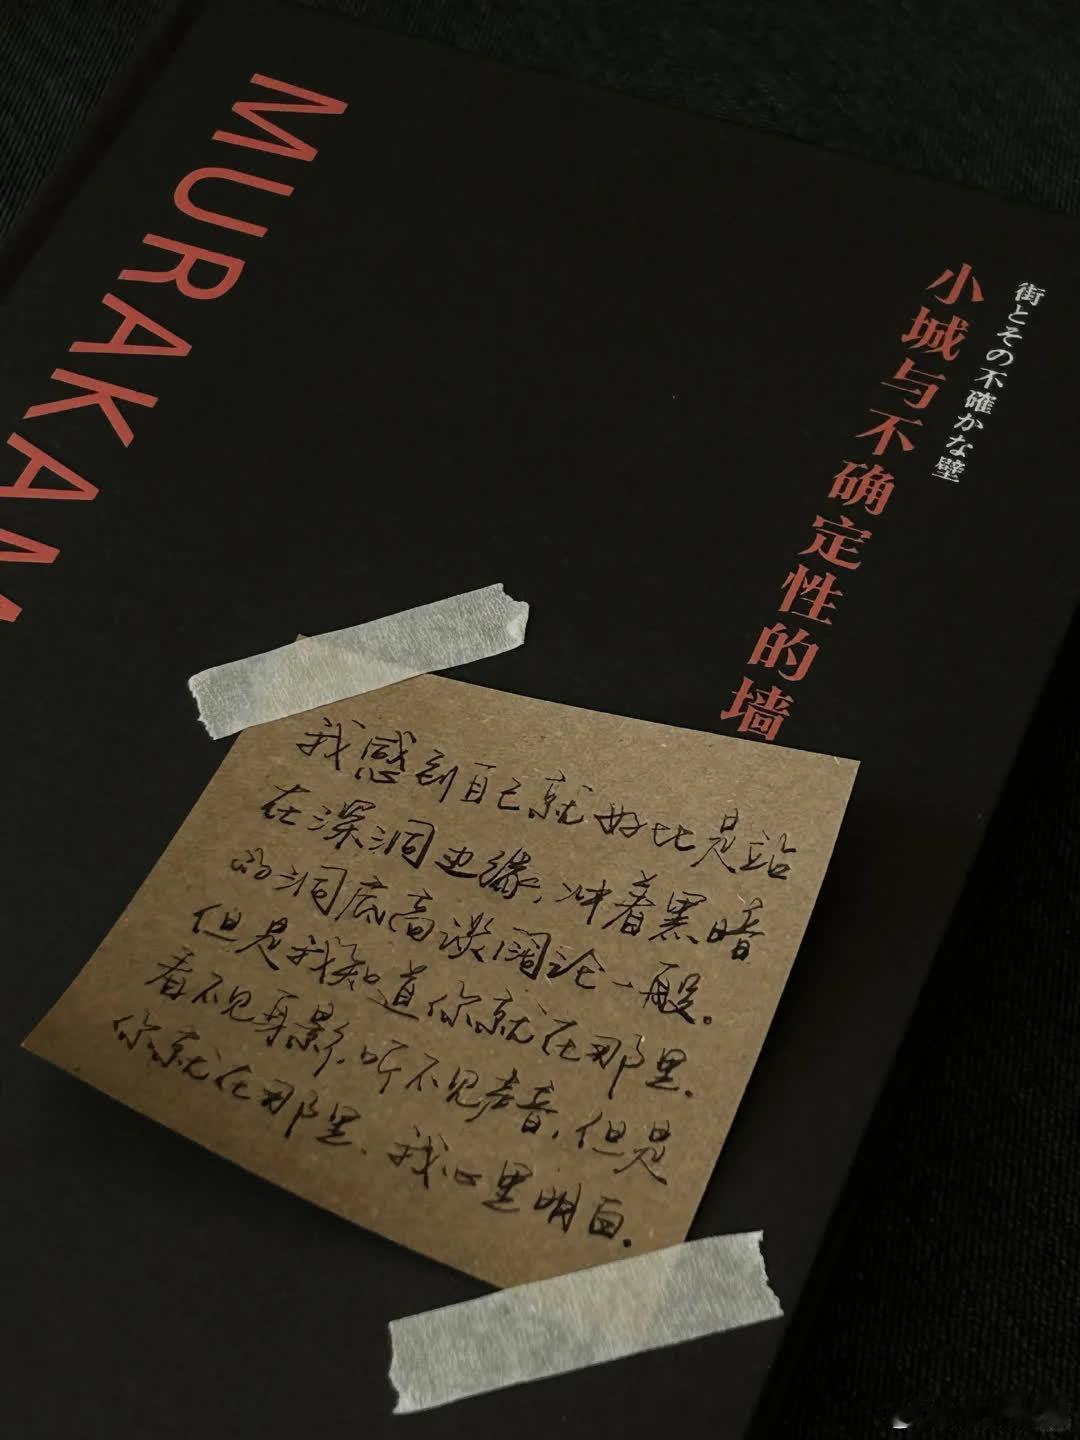 MURAKAM
街とその不確かな壁
小城与不确定性的墙
我感到自己就好比是站
在深洞边缘,冲着黑暗
的洞底高谈阔论一般。
但是我知道你就在那里.
看不见身影.听不见声音,但是
你就在那里.我心里明白.